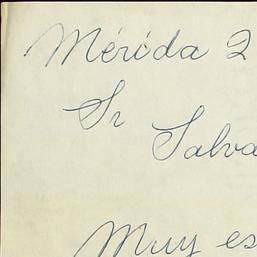 Mérida 2
Sr
Salva
Muy es